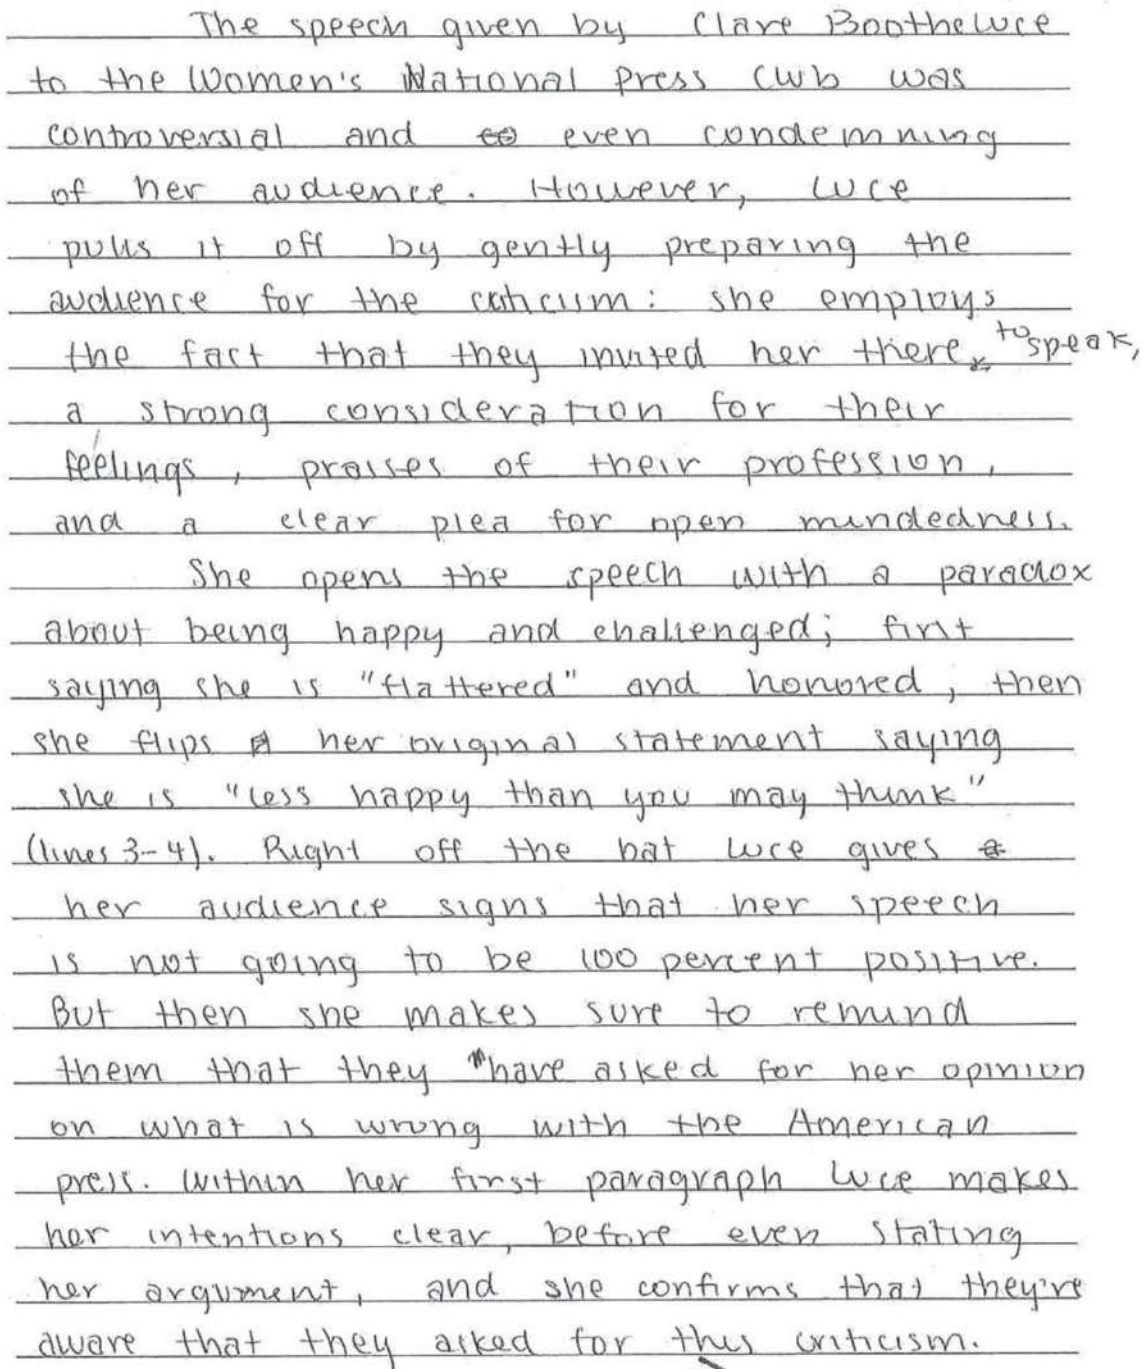 The speech given by Clare Bootheluce
to the Women's National Press Club was
controversial and even condemning
of her audience. However, Luce
pulls it off by gently preparing the
audience for the criticism: she employs
the fact that they invited her there to speak,
a strong consideration for their
feelings, praises of their profession,
and a clear plea for open mindedness.
She opens the speech with a paradox
about being happy and challenged; first
saying she is "flattered" and honored, then
she flips her original statement saying
she is "less happy than you may think"
(lines 3-4). Right off the bat Luce gives
her audience signs that her speech
is not going to be 100 percent positive.
But then she makes sure to remind
them that they have asked for her opinion
on what is wrong with the American
press. Within her first paragraph Luce makes
her intentions clear, before even stating
her argument, and she confirms that they're
aware that they asked for this criticism.